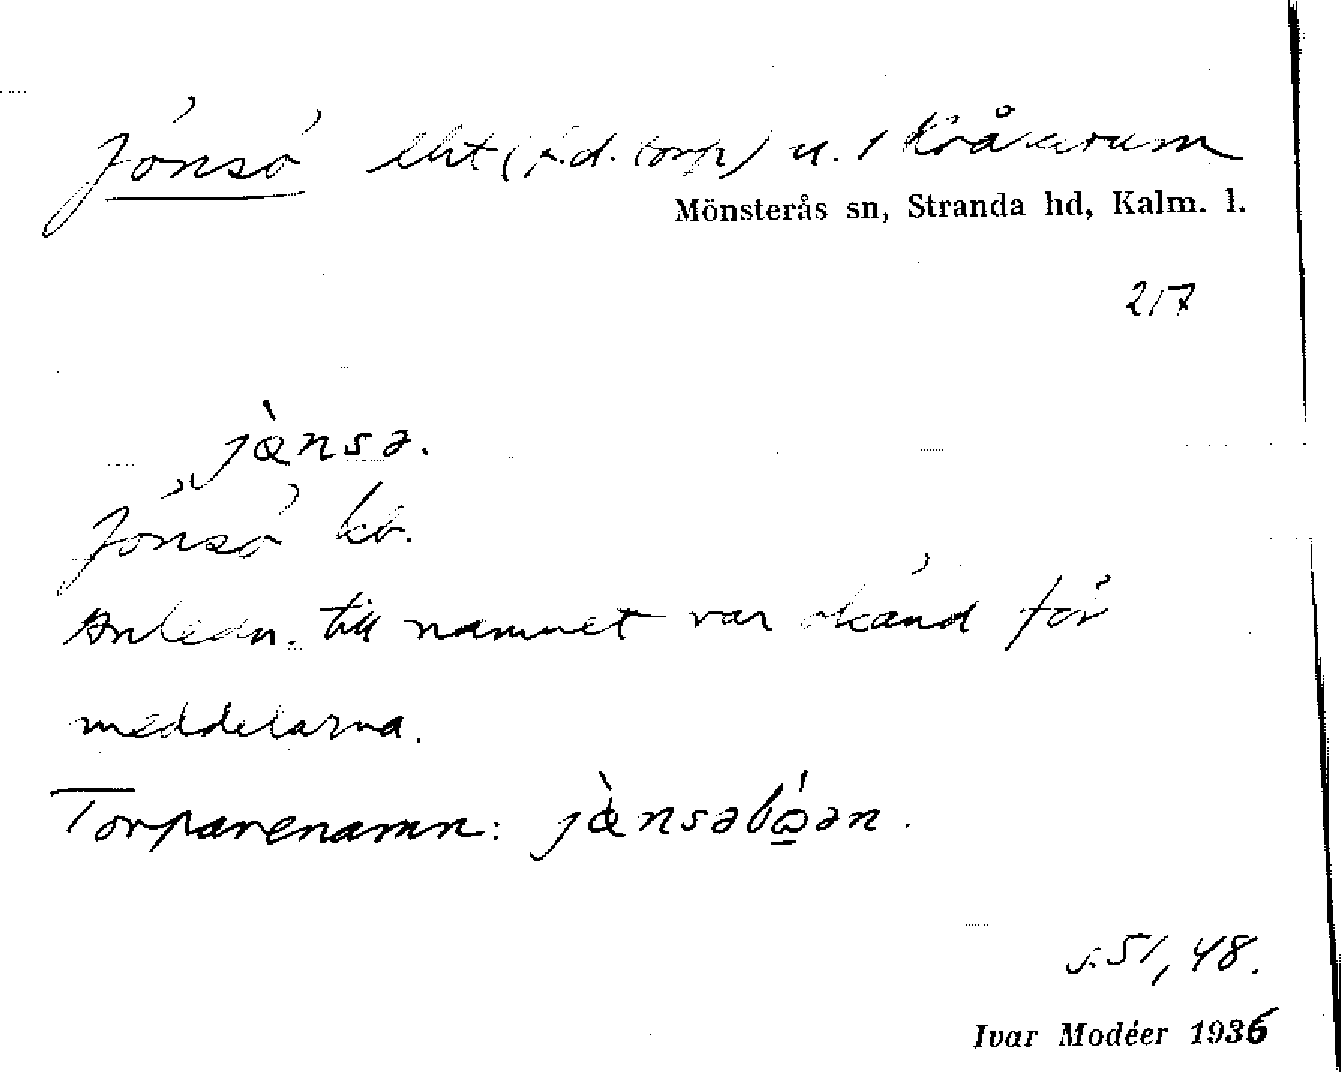 Jönsö lht (f.d. torp) u. 1 Kråkerum
Mönsterås sn, Stranda hd, Kalm. l.
217
jànsə.
Jönsö kb.
Anledn. till namnet var okänd för
meddelarna.
Torparenamn: jànsəbóən.
s. 51, 48.
Ivar Modéer 1936